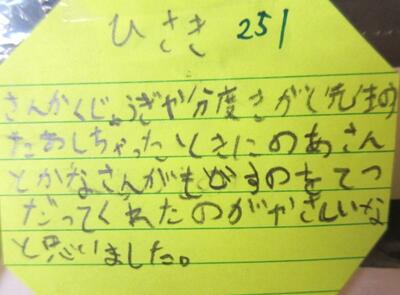 ひさき 251
さんかくじょうぎや分度きが(先生の
たおしちゃったときにのあさん
とかなさんがもどすのをてつ
だってくれたのがやさしいな
と思いました。